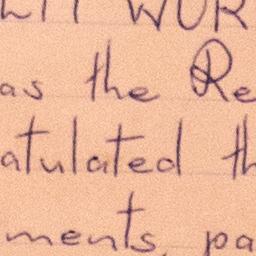 as the Re
atulated th
ments, pa